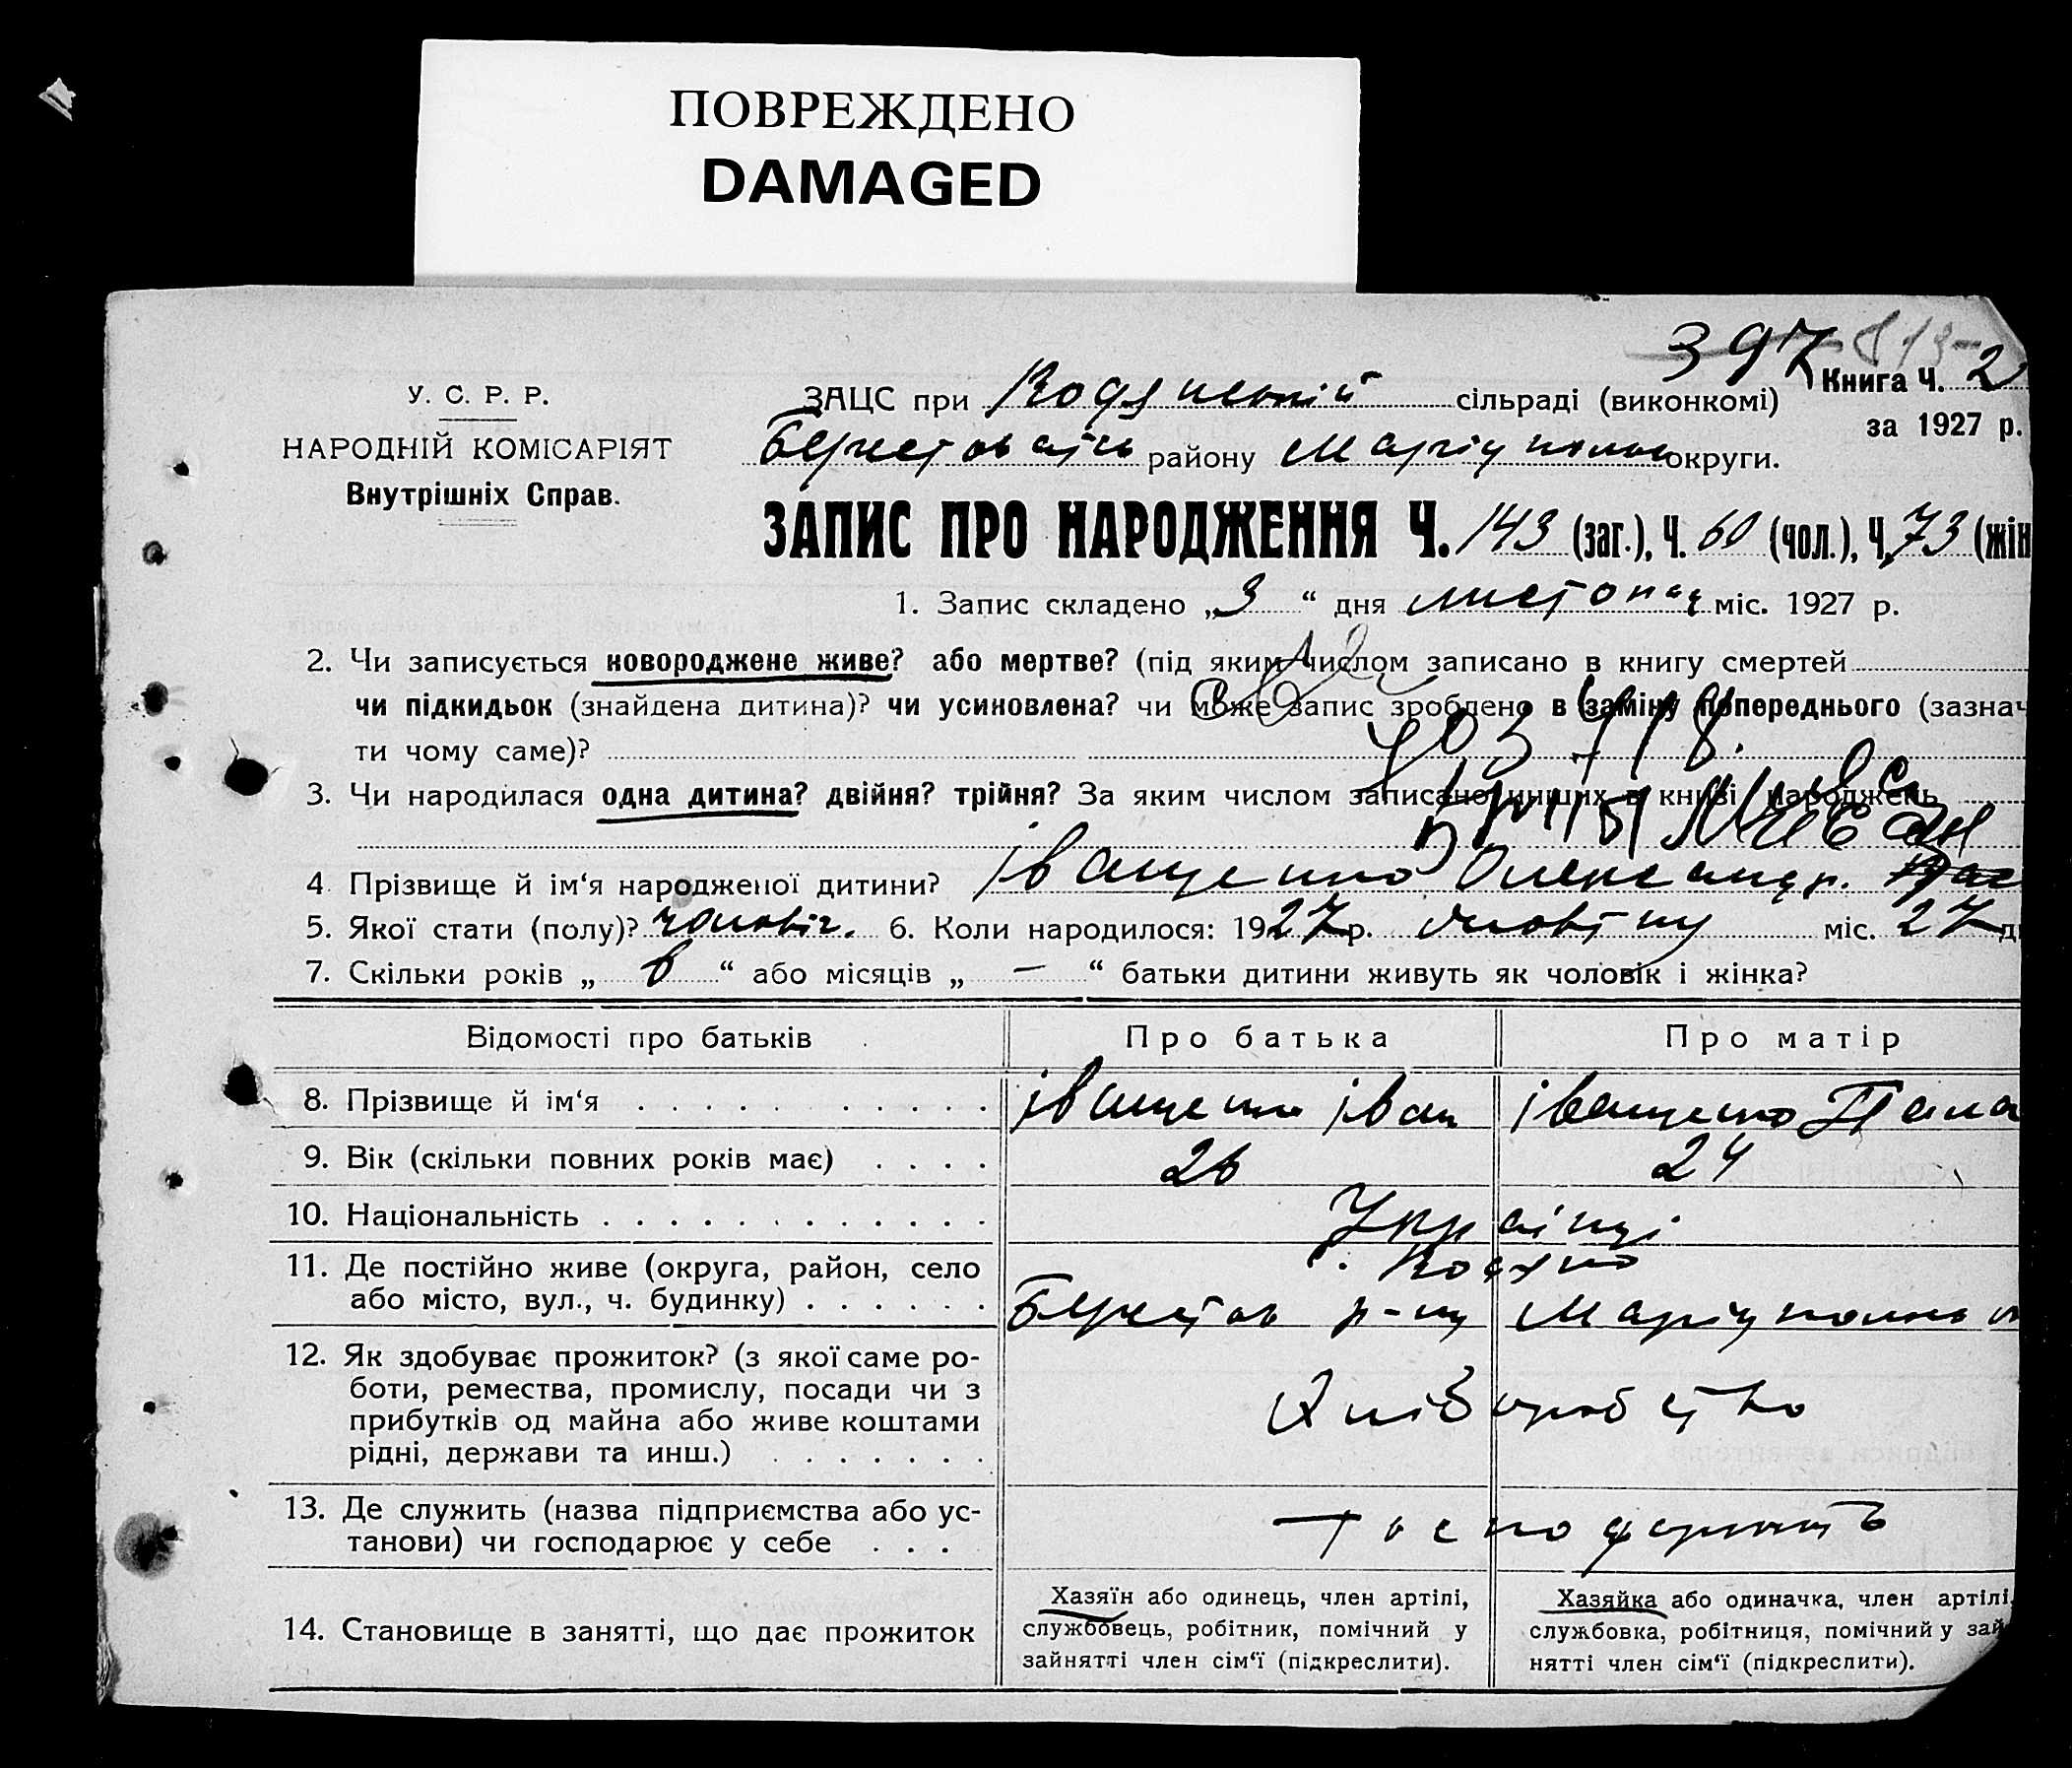 ПОВРЕЖДЕНО
DAMAGED
397
Книга Ч. 2
за 1927 р.
У. С. Р. Р.
НАРОДНІЙ КОМІСАРІЯТ
Внутрішніх Справ.
ЗАЦС при сільраді (виконкомі)
району округи.
ЗАПИС ПРО НАРОДЖЕННЯ Ч. 143 (заг.), Ч. 60 (чол.), Ч. 73 (жін
1. Запис складено „3“ дня листопад міс. 1927 р.
2. Чи записується новороджене живе? або мертве? (під яким числом записано в книгу смертей
чи підкидьок (знайдена дитина)? чи усиновлена? чи може запис зроблено в заміну попереднього (зазнач
ти чому саме)?
3. Чи народилася одна дитина? двійня? трійня? За яким числом записано инших в книзі народжень
4. Прізвище й ім‘я народженої дитини? Іващенко Олександр.
5. Якої стати (полу)? чоловіч. 6. Коли народилося: 1927 р. жовтню міс. 27 д
7. Скільки років „ 6 “ або місяців „ — “ батьки дитини живуть як чоловік і жінка?
Відомості про батьків Про батька Про матір
8. Прізвище й ім‘я Іващенко Іван Іващенко Пала
9. Вік (скільки повних років має) 26 24
10. Національність Українці
11. Де постійно живе (округа, район, село
або місто, вул., ч. будинку) Берестов р-ну
12. Як здобуває прожиток? (з якої саме ро-
боти, ремества, промислу, посади чи з
прибутків од майна або живе коштами
рідні, держави та инш.) Хліборобство
13. Де служить (назва підприємства або ус-
танови) чи господарює у себе Господарюють
14. Становище в занятті, що дає прожиток
Хазяїн або одинець, член артілі,
службовець, робітник, помічний у
зайнятті член сім‘ї (підкреслити).
Хазяйка або одиначка, член артілі,
службовка, робітниця, помічний у зай-
нятті член сім‘ї (підкреслити).